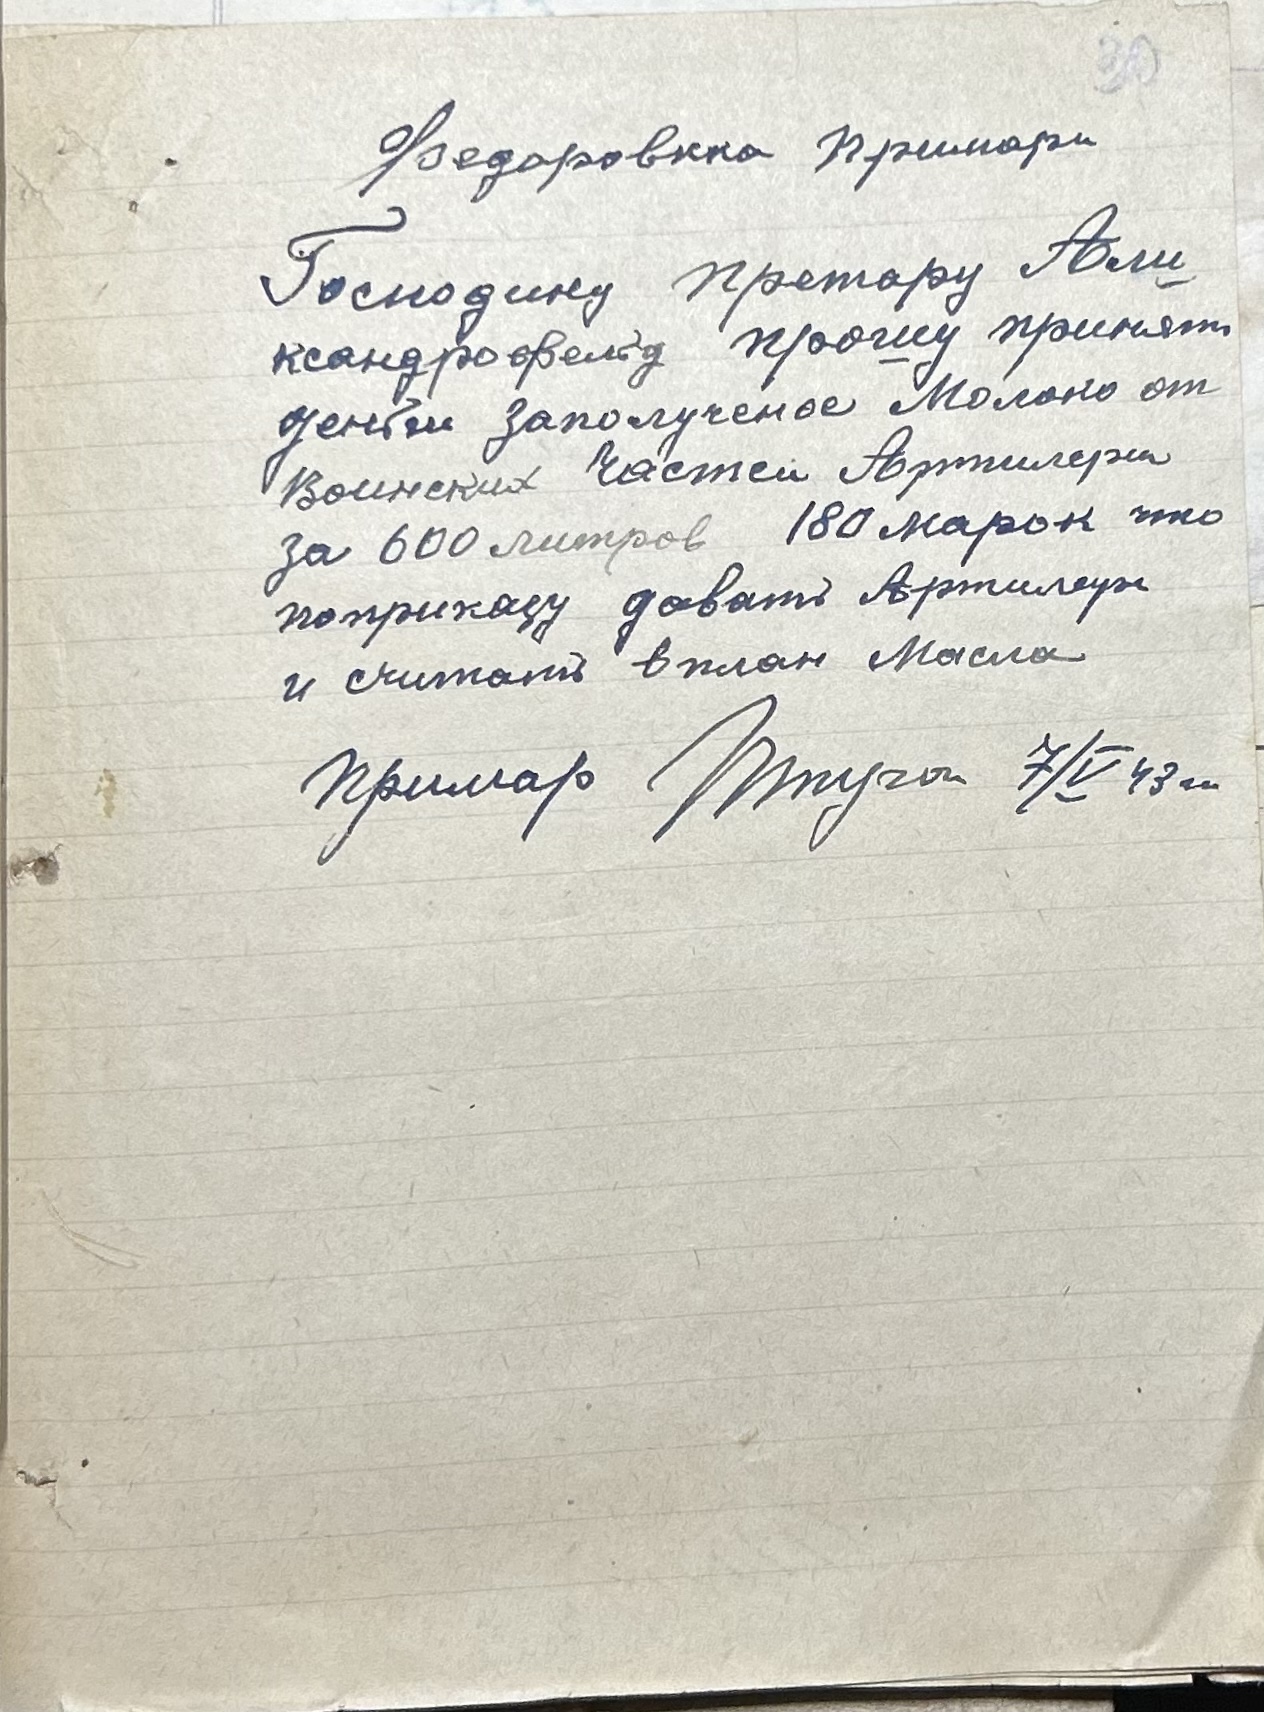 30
Федоровкка Примари
Господину претару Али
ксандрофельд прошу принять
деньги заполученое Молоко от
Воинских Частей Артилери
за 600 литров 180 марок что
поприказу давать Артилери
и считать вплан Масла
Примар 7/V 43 г